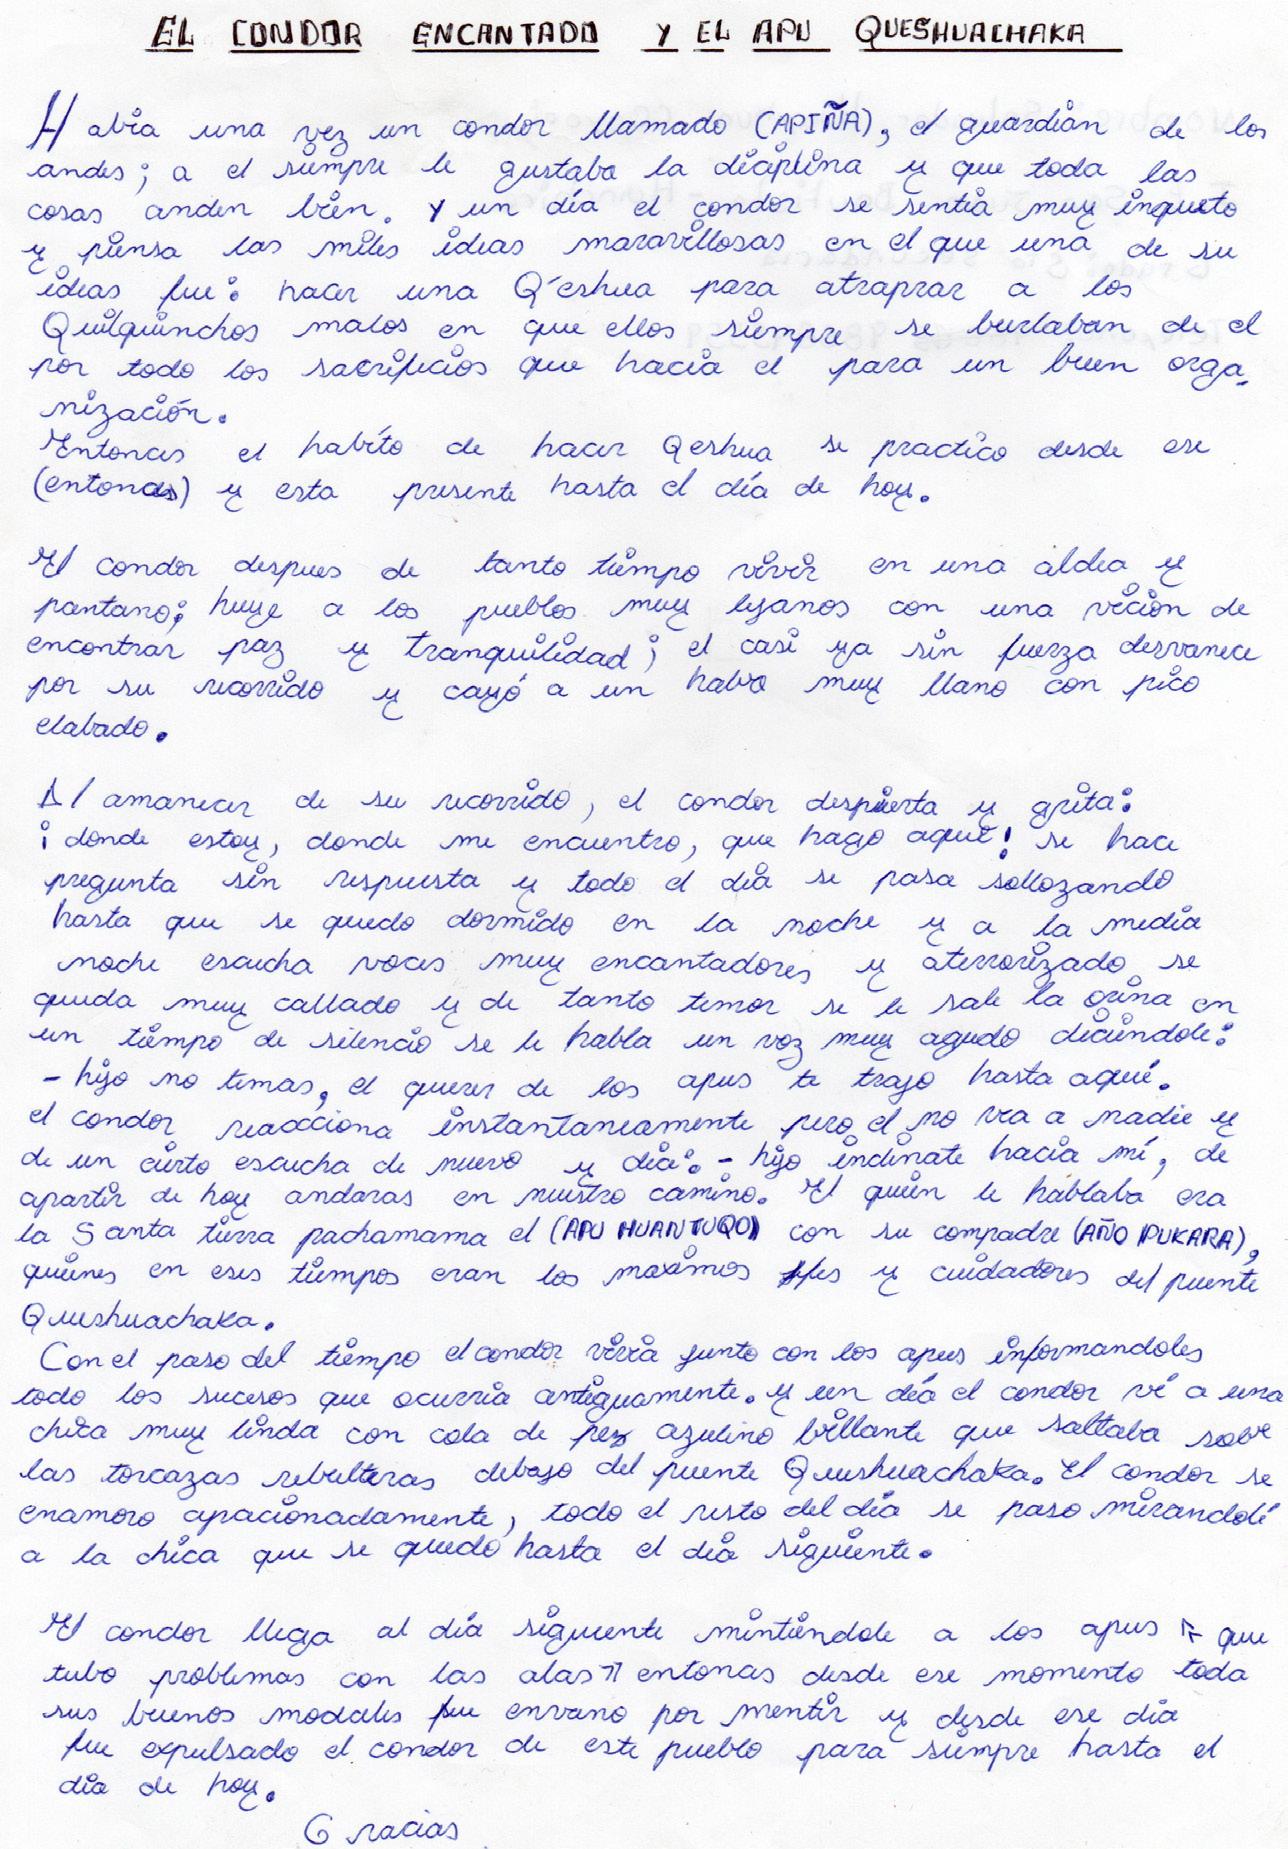 EL CONDOR ENCANTADO Y EL APU QUESHUACHAKA
Habia una vez un condor llamado (APIÑA), el guardian de los
andes; a el siempre le gustaba la diciplina y que toda las
cosas anden bien. Y un día el condor se sentia muy inqueto
y piensa las miles ideas maravillosas en el que una de su
ideas fue: hacer una Q'eshua para atraprar a los
Quilquinchos malos en que ellos siempre se burlaban de el
por todo los sacrificios que hacia el para un buen orga-
nización.
Entonces el habíto de hacer Qeshua se practico desde ese
(entonces) y esta presente hasta el día de hoy.
El condor despues de tanto tiempo vivir en una aldea y
pantano; huye a los pueblos muy lejanos con una vicion de
encontrar paz y tranquilidad; el casi ya sin fuerza desvanece
por su recorrido y cayó a un habra muy llano con pico
elabado.
Al amanecer de su recorrido, el condor despierta y grita:
¡donde estoy, donde me encuentro, que hago aqui! se hace
pregunta sin respuesta y todo el dia se pasa sollozando
hasta que se quedo dormido en la noche y a la media
noche escucha voces muy encantadores y aterrorizado se
queda muy callado y de tanto temor se le sale la orina en
un tiempo de silencio se le habla un voz muy agudo diciendole:
- hijo no temas, el querer de los apus te trajo hasta aquí.
el condor reacciona instantaneamente pero el no vea a nadie y
de un cierto escucha de nuevo y dicia: - hijo inclinate hacia mí, de
apartir de hoy andaras en nuestro camino. El quien le hablaba era
la Santa tierra pachamama el (APU HUANTUQO) con su compadre (AÑO PUKARA),
quienes en eses tiempos eran los maximos jefes y cuidadores del puente
Queshuachaka.
Con el paso del tiempo el condor vivia junto con los apus informandoles
todo los sucesos que ocurria antiguamente. y un día el condor vé a una
chica muy linda con cola de pez azulino brillante que saltaba sobre
las torcazas rebulteras debajo del puente Queshuachaka. El condor se
enamoro apacionadamente, todo el resto del día se paso mirandole
a la chica que se quedo hasta el dia siguiente.
El condor llega al día siguiente mintiendole a los apus " que
tubo problemas con las alas " entonces desde ese momento toda
sus buenos modales fue envano por mentir y desde ese dia
fue expulsado el condor de este pueblo para siempre hasta el
dia de hoy.
Gracias